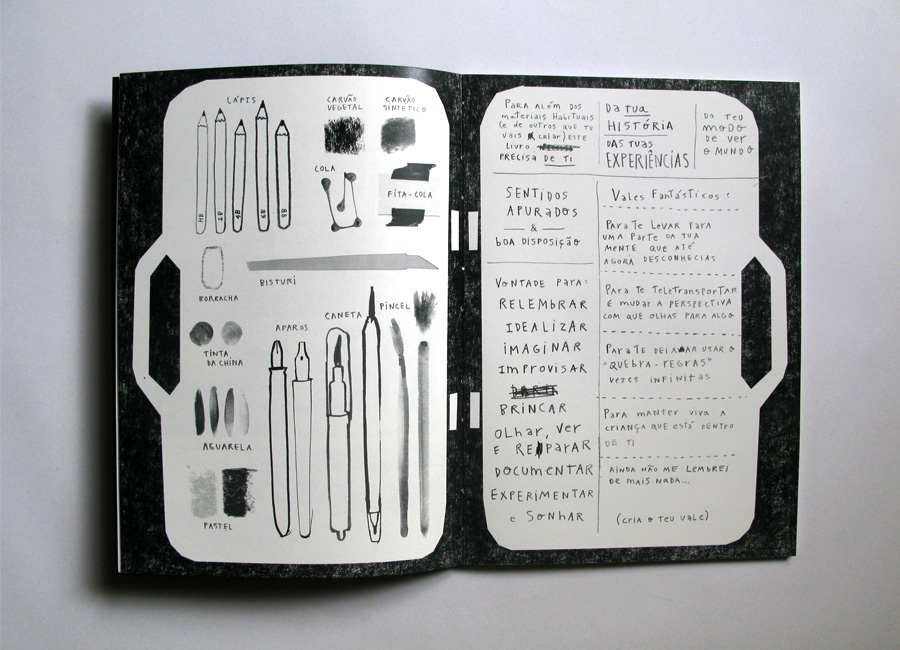 LÁPIS
CARVÃO
VEGETAL
CARVÃO
SINTÉTICO
COLA
FITA-COLA
BORRACHA
BISTURI
TINTA
DA CHINA
APAROS
CANETA
PINCEL
AGUARELA
PASTEL
PARA ALÉM DOS
MATERIAIS HABITUAIS
(E DE OUTROS QUE TU
VAIS CRIAR) ESTE
LIVRO
PRECISA DE TI
DA TUA
HISTÓRIA
DAS TUAS
EXPERIÊNCIAS
DO TEU
MODO
DE VER
O MUNDO
SENTIDOS
APURADOS
&
BOA DISPOSIÇÃO
VONTADE PARA:
RELEMBRAR
IDEALIZAR
IMAGINAR
IMPROVISAR
BRINCAR
OLHAR, VER
E REPARAR
DOCUMENTAR
EXPERIMENTAR
E SONHAR
VALES FANTÁSTICOS:
PARA TE LEVAR PARA
UMA PARTE DA TUA
MENTE QUE ATÉ
AGORA DESCONHECIAS
PARA TE TELETRANSPORTAR
E MUDAR A PERSPECTIVA
COM QUE OLHAS PARA ALGO
PARA TE DEIXAR USAR O
"QUEBRA-REGRAS"
VEZES INFINITAS
PARA MANTER VIVA A
CRIANÇA QUE ESTÁ DENTRO
DE TI
AINDA NÃO ME LEMBREI
DE MAIS NADA...
(CRIA O TEU VALE)